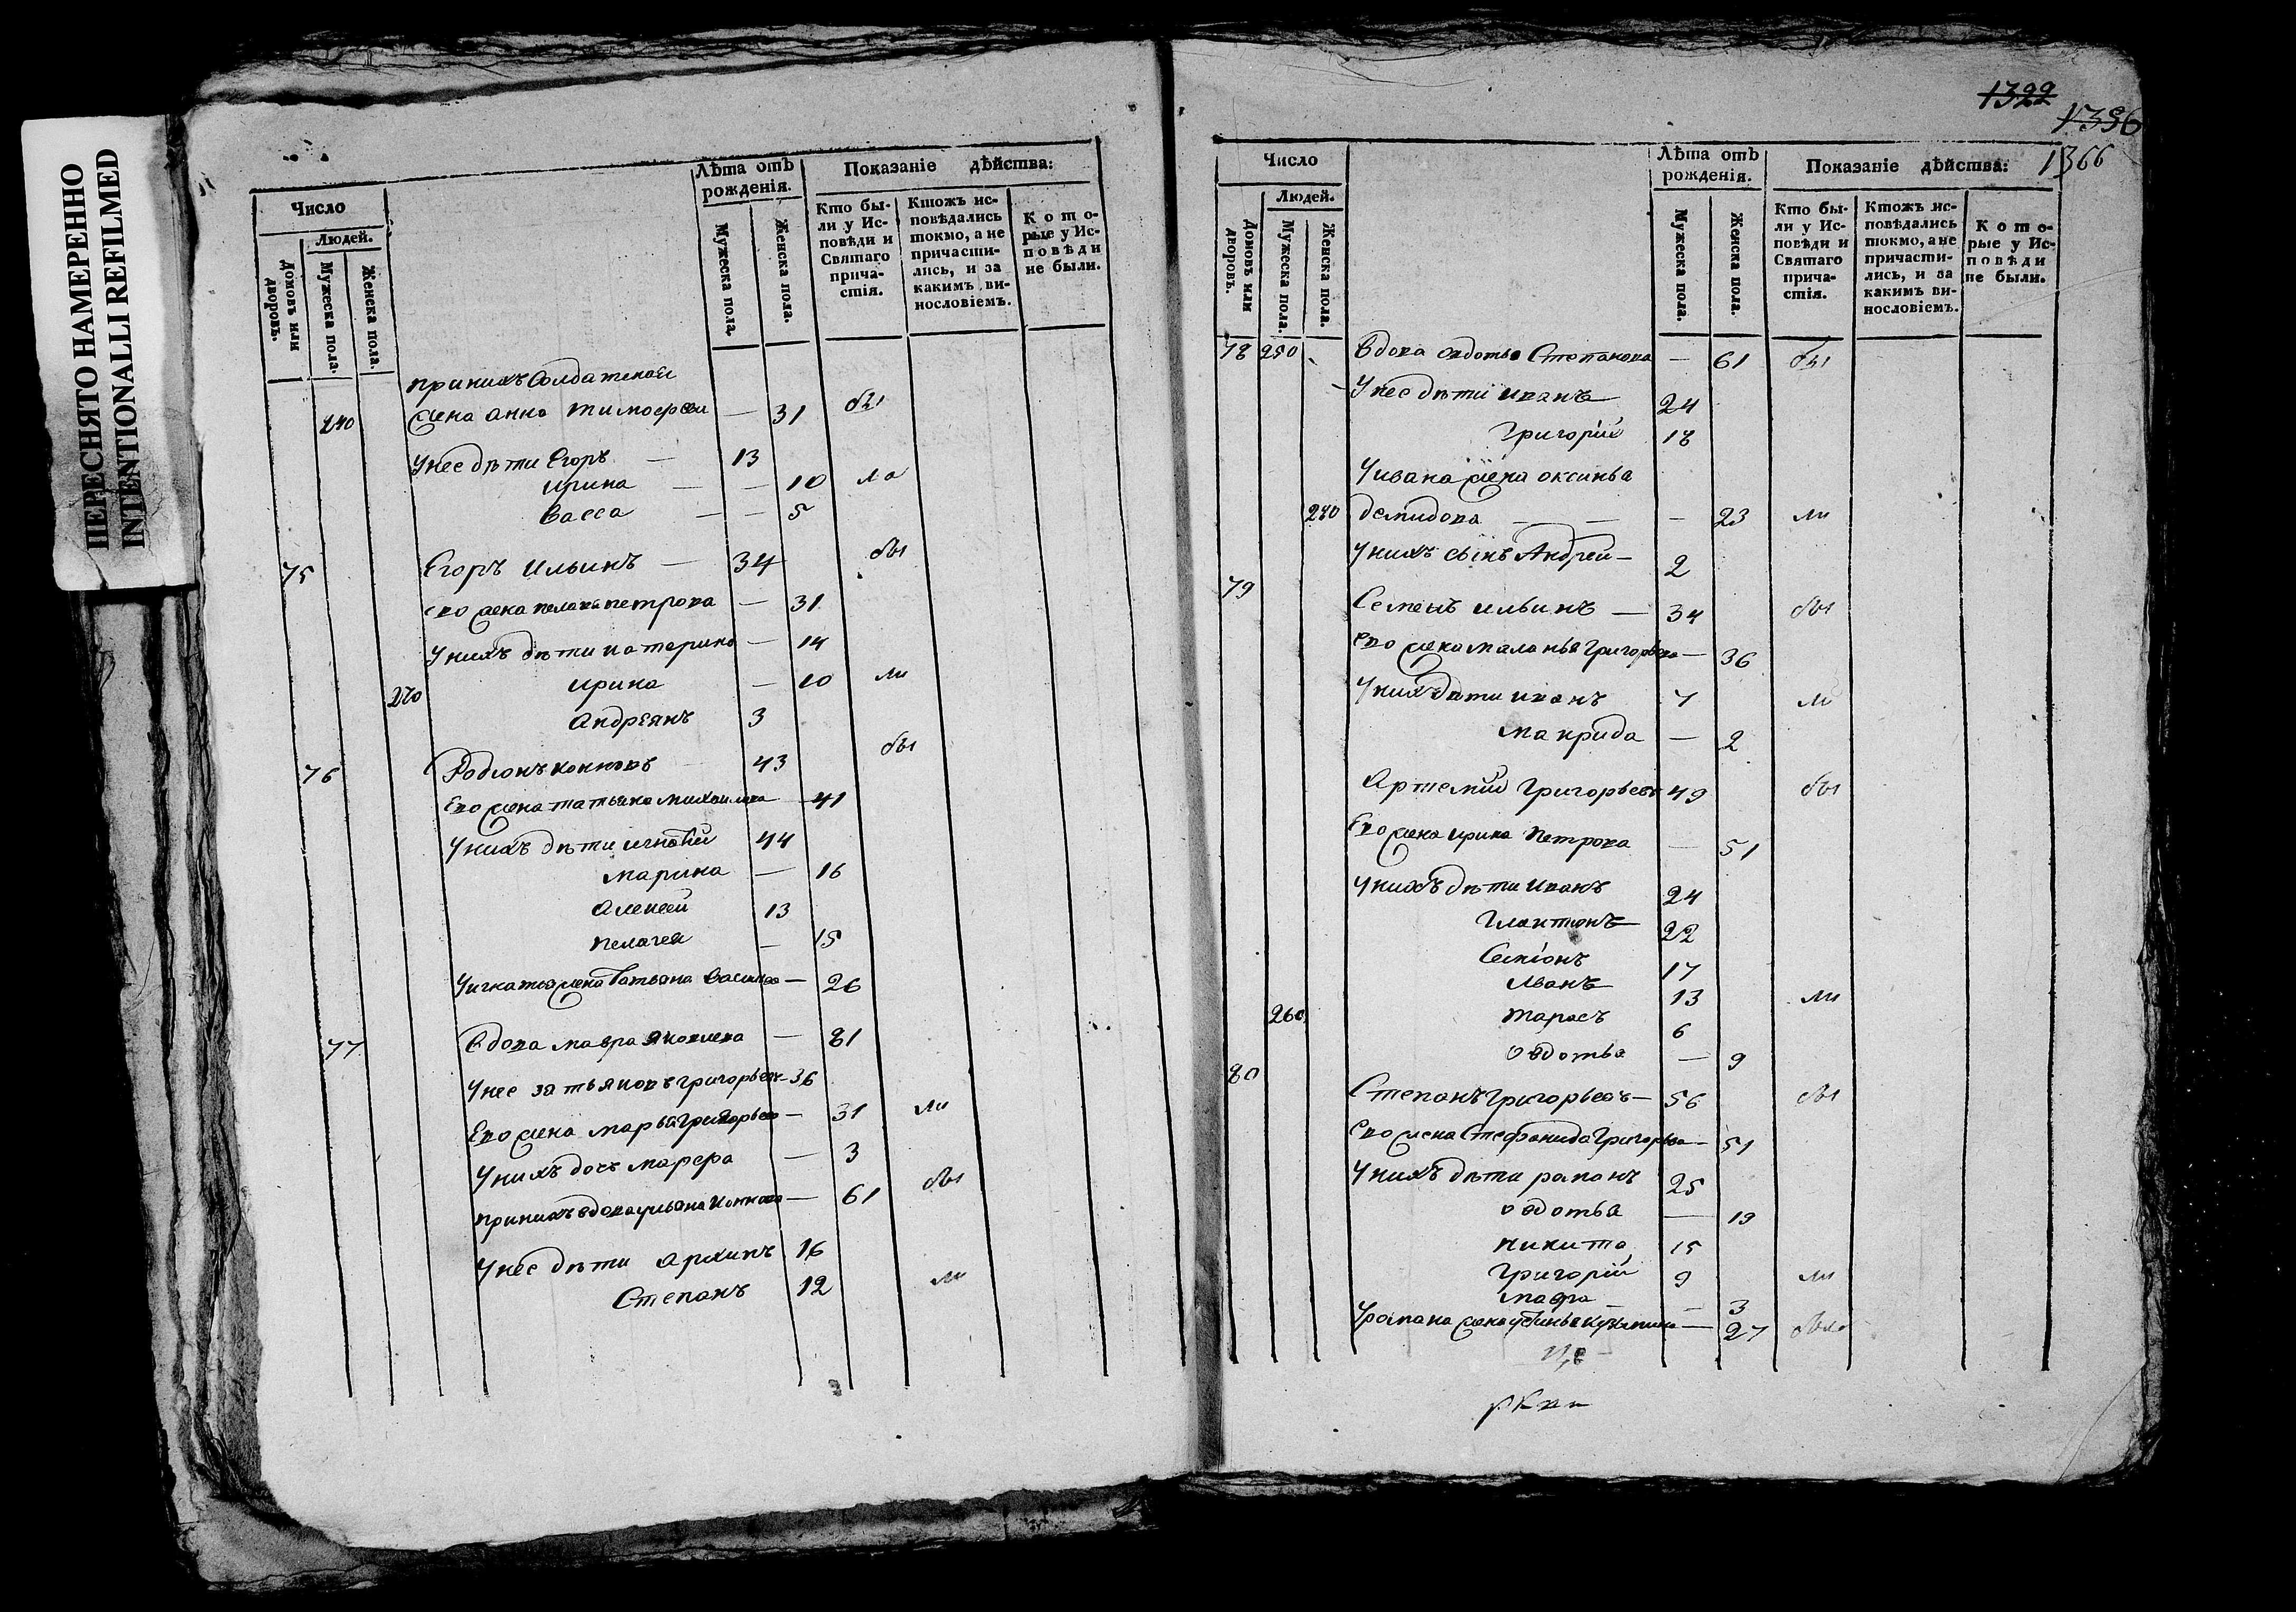 ПЕРЕСНЯТО НАМЕРЕННО
INTENTIONALLI REFILMED
Число
Людей.
Домовъ или дворовъ.
Мужеска пола.
Женска пола.
Лѣта отъ рожденія.
Мужеска пола.
Женска пола.
Показаніе дѣйства:
Кто бы-
ли у Ис-
повѣди и
Святаго
прича-
стія.
Ктожъ ис-
повѣдались
токмо, а не
причасти-
лись, и за
какимъ ви-
нословіемъ.
Кото-
рые у Ис-
повѣди
не были.
принихъ Солдатская
240 жена анна тимофѣева — 31 бы
Унее дѣти Егоръ — 13
ирина — — 10 ли
Васса — — 5
75 Егоръ Ильинъ — 34 бы
ево жена пелагея петрова — 31
Унихъ дѣти катерина — 14
270 ирина — 10 ли
Андреянъ 3
76 Родіонъ 43 бы
Ево жена татьяна михаилова — 41
Унихъ дѣти игнатей 44
марина — 16
Алексей 13
пелагея — 15
Уигнатья жена Татьяна Васильева — 26
77 Вдова мавра Яковлева — 81
Унее зять яковъ григорьевъ — 36
Ево жена марья григорьева — 31 ли
Унихъ дочь марфа — 3
принихъ вдова ульяна — 61 бы
Унее дѣти Архипъ 16
Степанъ 12 ли
1322
1356
1366
Число
Людей.
Домовъ или дворовъ.
Мужеска пола.
Женска пола.
Лѣта отъ рожденія.
Мужеска пола.
Женска пола.
Показаніе дѣйства:
Кто бы-
ли у Ис-
повѣди и
Святаго
прича-
стія.
Ктожъ ис-
повѣдались
токмо, а не
причасти-
лись, и за
какимъ ви-
нословіемъ.
Кото-
рые у Ис-
повѣди
не были.
78 250 Вдова Овдотья Степанова — 61 бы
Унее дѣти иванъ 24
Григорій 18
Уивана жена оксинья
280 демидова — — — 23 ли
Унихъ сынъ Андрей — 2
79 Семенъ ильинъ — 34 бы
ево жена маланья григорьева — 36
Унихъ дѣти иванъ 7 ли
макрида — 2
Артемій григорьевъ 49 бы
Ево жена ирина петрова — 51
Унихъ дѣти иванъ 24
Галактіонъ 22
Семіонъ 17
Иванъ 13 ли
260 тарасъ 6
овдотья — 9
80 Степанъ григорьевъ — 56 бы
ево жена Стефанида григорьева — 51
Унихъ дѣти романъ 25
овдотья — 19
никита 15
григорій 9 ли
мавра — — 3
Уромана жена устинья — 27